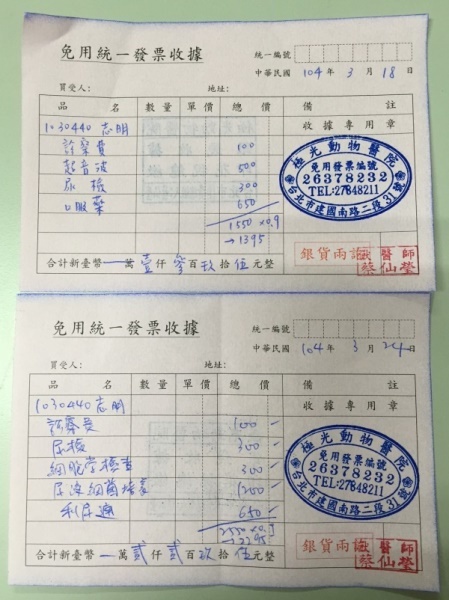 免用統一發票收據
統一編號
中華民國 104年 3月 18日
買受人： 地址：
品名 數量 單價 總價 備註
收據專用章
1030440 志明
診察費 100
超音波 500
尿檢 300
口服藥 650
1550 x0.9
→1395
極光動物醫院
免用發票編號
26378232
TEL:27848211
台北市建國南路二段31號
銀貨兩訖
獸醫師
蔡仙瑩
合計新臺幣 萬壹仟參百玖拾伍元整
免用統一發票收據
統一編號
中華民國 104年 3月 24日
買受人： 地址：
品名 數量 單價 總價 備註
收據專用章
1030440 志明
診察費 100
尿檢 300
細胞學檢查 300
尿液細菌培養 1200
利尿通 650
2550 x0.9
→2295
極光動物醫院
免用發票編號
26378232
TEL:27848211
台北市建國南路二段31號
銀貨兩訖
獸醫師
蔡仙瑩
合計新臺幣 萬貳仟貳百玖拾伍元整